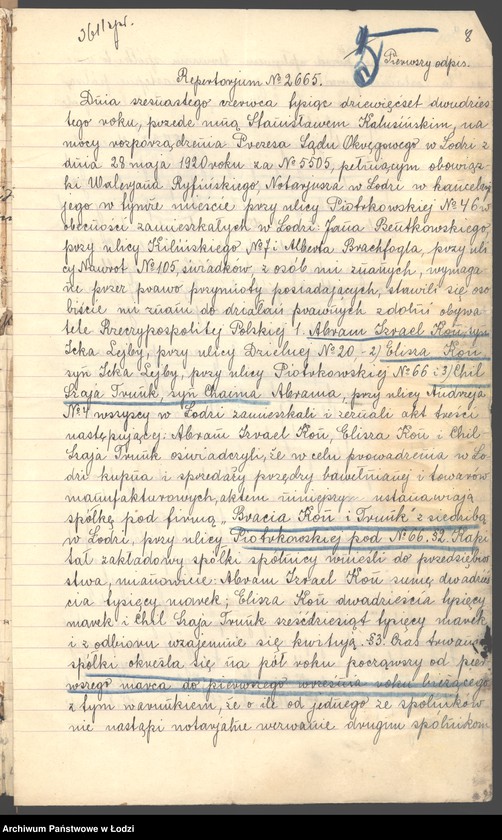 361/apr.
8
Pierwszy odpis.
Repertorjum № 2665.
Dnia szesnastego czerwca tysiąc dziewięćset dwudzies
tego roku, przede mną Stanisławem Kałusińskim, na
mocy rozporządzenia Prezesa Sądu Okręgowego w Łodzi z
dnia 28 maja 1920 roku za № 5505, pełniącym obowiąz
ki Waleryana Ryfińskiego, Notarjusza w Łodzi w kancelarji
jego w tymże mieście przy ulicy Piotrkowskiej № 46 w
obecności zamieszkałych w Łodzi: Jana Bentkowskiego,
przy ulicy Kilińskiego № 7 i Alberta Brachfogla, przy uli
cy Nawrot № 105, świadków, z osób mi znanych, wymaga
ne przez prawo przymioty posiadających, stawili się oso
biście mi znani do działań prawnych zdolni obywa
tele Rzeczypospolitej Polskiej 1. Abram Izrael Kon, syn
Icka Lejby, przy ulicy Dzielnej № 20 - 2) Elisza Kon
syn Icka Lejby, przy ulicy Piotrkowskiej № 66 i 3) Chil
Szaja Trunk, syn Chaima Abrama, przy ulicy Andrzeja
№ 4 wszyscy w Łodzi zamieszkali i zeznali akt treści
następującej: Abram Izrael Kon, Elisza Kon i Chil
Szaja Trunk oświadczyli, że w celu prowadzenia w Ło
dzi kupna i sprzedaży przędzy bawełnianej i towarów
manufakturowych, aktem niniejszym ustanawiają
spółkę pod firmą „Bracia Kon i Trunk" z siedzibą
w Łodzi, przy ulicy Piotrkowskiej pod № 66. §2. Kapi
tał zakładowy spółki spólnicy wnieśli do przedsiębior
stwa, mianowicie: Abram Izrael Kon sumę dwadzieś
cia tysięcy marek; Elisza Kon dwadzieścia tysięcy
marek i Chil Szaja Trunk sześćdziesiąt tysięcy marek
i z odbioru wzajemnie się kwitują. §3. Czas trwania
spółki określa się na pół roku począwszy od pier
wszego marca do pierwszego września roku bieżącego
z tym warunkiem, że o ile od jednego ze spólników
nie nastąpi notarjalne wezwanie drugim spólnikom
Archiwum Państwowe w Łodzi